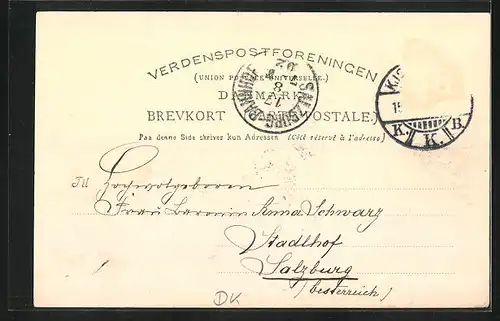 VERDENSPOSTFORENINGEN
(UNION POSTALE UNIVERSELLE.)
DANMARK
BREVKORT POSTALE.)
Paa denne Side skrives kun Adressen (Côté réservé à l'adresse)
SALZBURG BAHNHOF
17 8
K. K. B.
Til Hochwolgeboren
Frau Baronin Anna Schwarz
Stadlhof
Salzburg
(Oesterreich)
DK